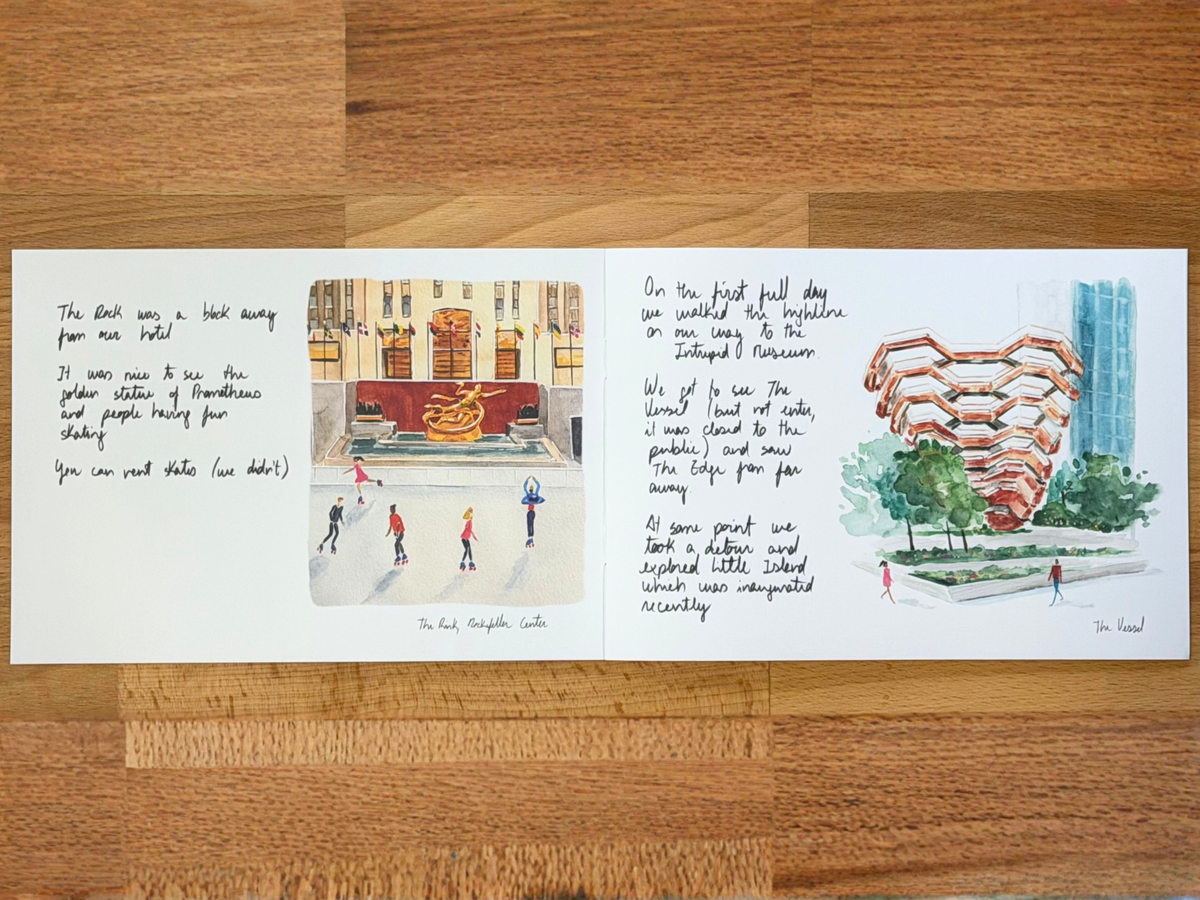 The Rock was a block away
from our hotel
It was nice to see the
golden statue of Prometheus
and people having fun
skating
You can rent skates (we didn't)
The Rink, Rockefeller Center
On the first full day
we walked the highline
on our way to the
Intrepid Museum.
We got to see The
Vessel (but not enter,
it was closed to the
public) and saw
The Edge from far
away.
At some point we
took a detour and
explored Little Island
which was inaugurated
recently
The Vessel